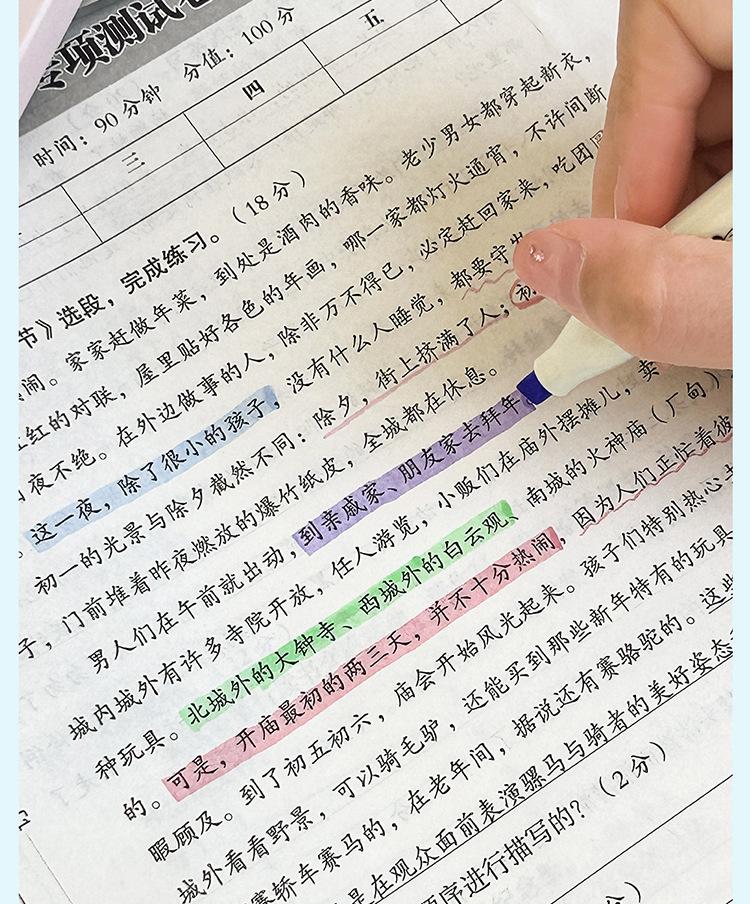 专项测试卷
时间：90分钟 分值：100分
三 四 五
节》选段，完成练习。（18分）
闹。家家赶做年菜，到处是酒肉的香味。老少男女都穿起新衣，
红红的对联，屋里贴好各色的年画，哪一家都灯火通宵，不许间断
日夜不绝。在外边做事的人，除非万不得已，必定赶回家来，吃团圆
。这一夜，除了很小的孩子，没有什么人睡觉，都要守岁
初一的光景与除夕截然不同：除夕，街上挤满了人；初
子，门前堆着昨夜燃放的爆竹纸皮，全城都在休息。
男人们在午前就出动，到亲戚家、朋友家去拜年
城内城外有许多寺院开放，任人游览，小贩们在庙外摆摊儿，卖
种玩具。北城外的大钟寺、西城外的白云观、南城的火神庙（厂甸）
的。可是，开庙最初的两三天，并不十分热闹，因为人们正忙着彼
暇顾及。到了初五初六，庙会开始风光起来。孩子们特别热心去
城外看看野景，可以骑毛驴，还能买到那些新年特有的玩具
赛轿车赛马的，在老年间，据说还有赛骆驼的。这些
是在观众面前表演骡马与骑者的美好姿态
顺序进行描写的？（2分）
分）